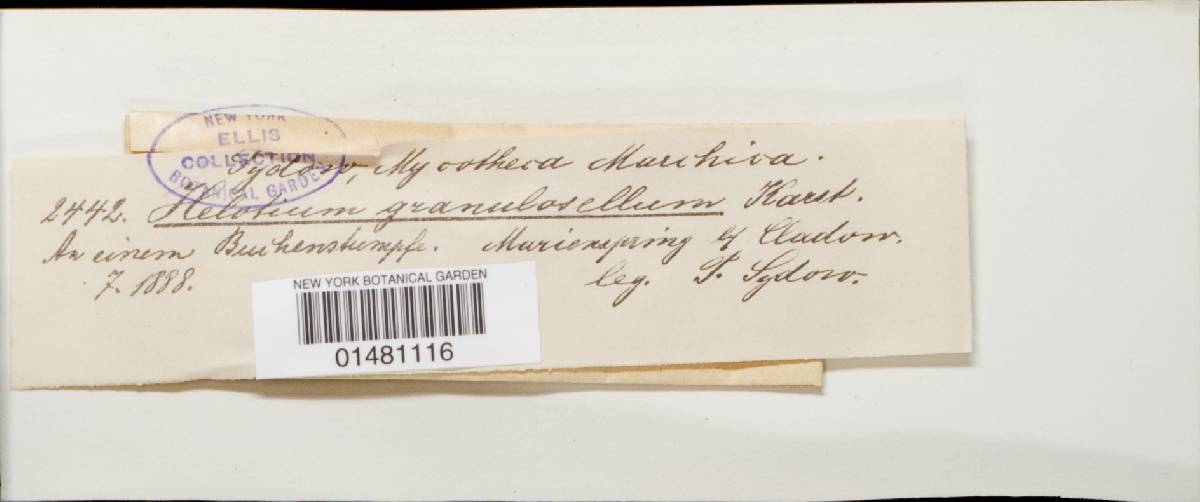 NEW YORK
ELLIS
COLLECTION
BOTANICAL GARDEN
Sydow, Mycotheca Marchica.
2442. Helotium granulosellum Karst.
An einem Buchenstumpfe. Marienspring b/ Cladow.
7. 1888.
leg. P. Sydow.
NEW YORK BOTANICAL GARDEN
01481116